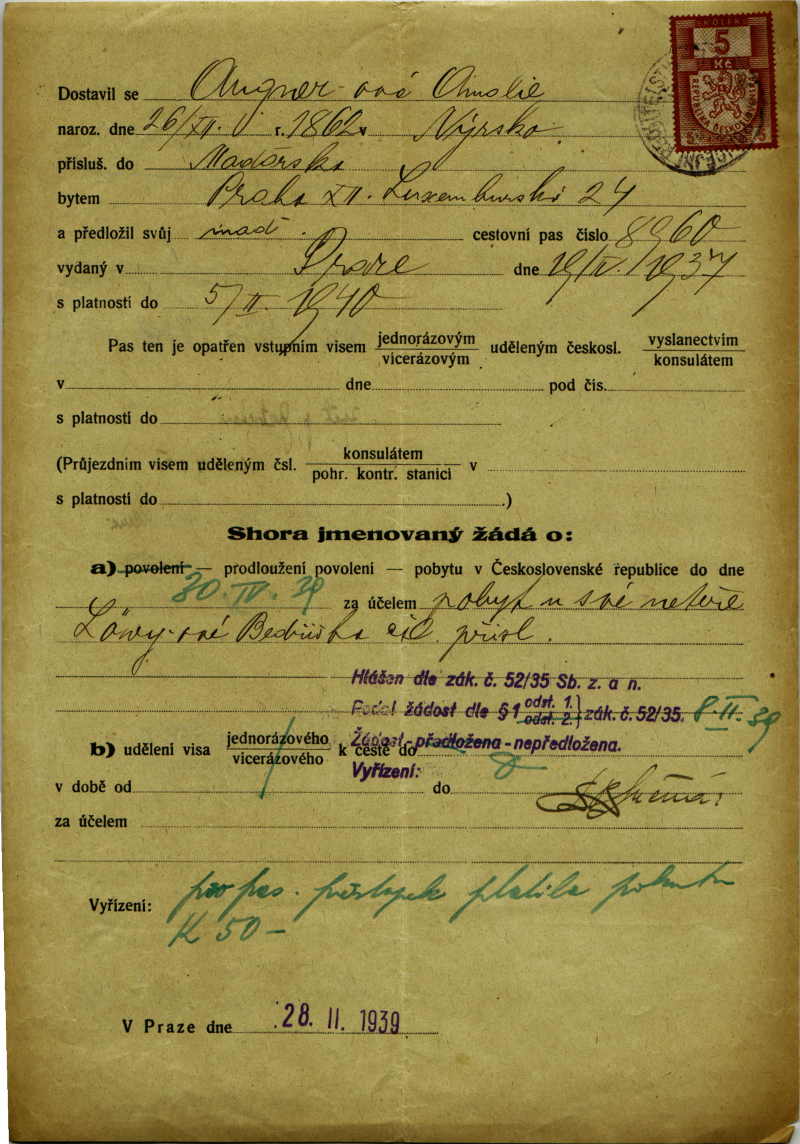 KOLEK
5
Kč
Dostavil se Angner-ová Amalie
naroz. dne 26/XII. r. 1862 Nýrsko
přísluš. do Maďarska
bytem Praha XII. Luxemburská 24
a předložil svůj maď. cestovní pas číslo 8960
vydaný v Praze dne 19/IV. 1937
s platností do 5/II. 1940
Pas ten je opatřen vstupním visem jednorázovým uděleným českosl. vyslanectvím
vícerázovým konsulátem
v dne pod čís.
s platností do
(Průjezdním visem uděleným čsl. konsulátem v
pohr. kontr. stanicí
s platností do .)
Shora jmenovaný žádá o:
a) povolení — prodloužení povolení — pobytu v Československé řepublice do dne
30. IV. 39 za účelem pobytu u své neteře
Löwy-ové Bedřiška přísl.
Hlášen dle zák. č. 52/35 Sb. z. a n.
Podal žádost dle § 1 odst. 1. zák. č. 52/35. 8. II. 39
odst. 2.
b) udělení visa jednorázového k cestě do
vícerázového
Žádost - předložena - nepředložena.
Vyřízení:
v době od do
za účelem
Vyřízení: pro pas. přestupek platila pokutu
K 50 —
V Praze dne 28. II. 1939